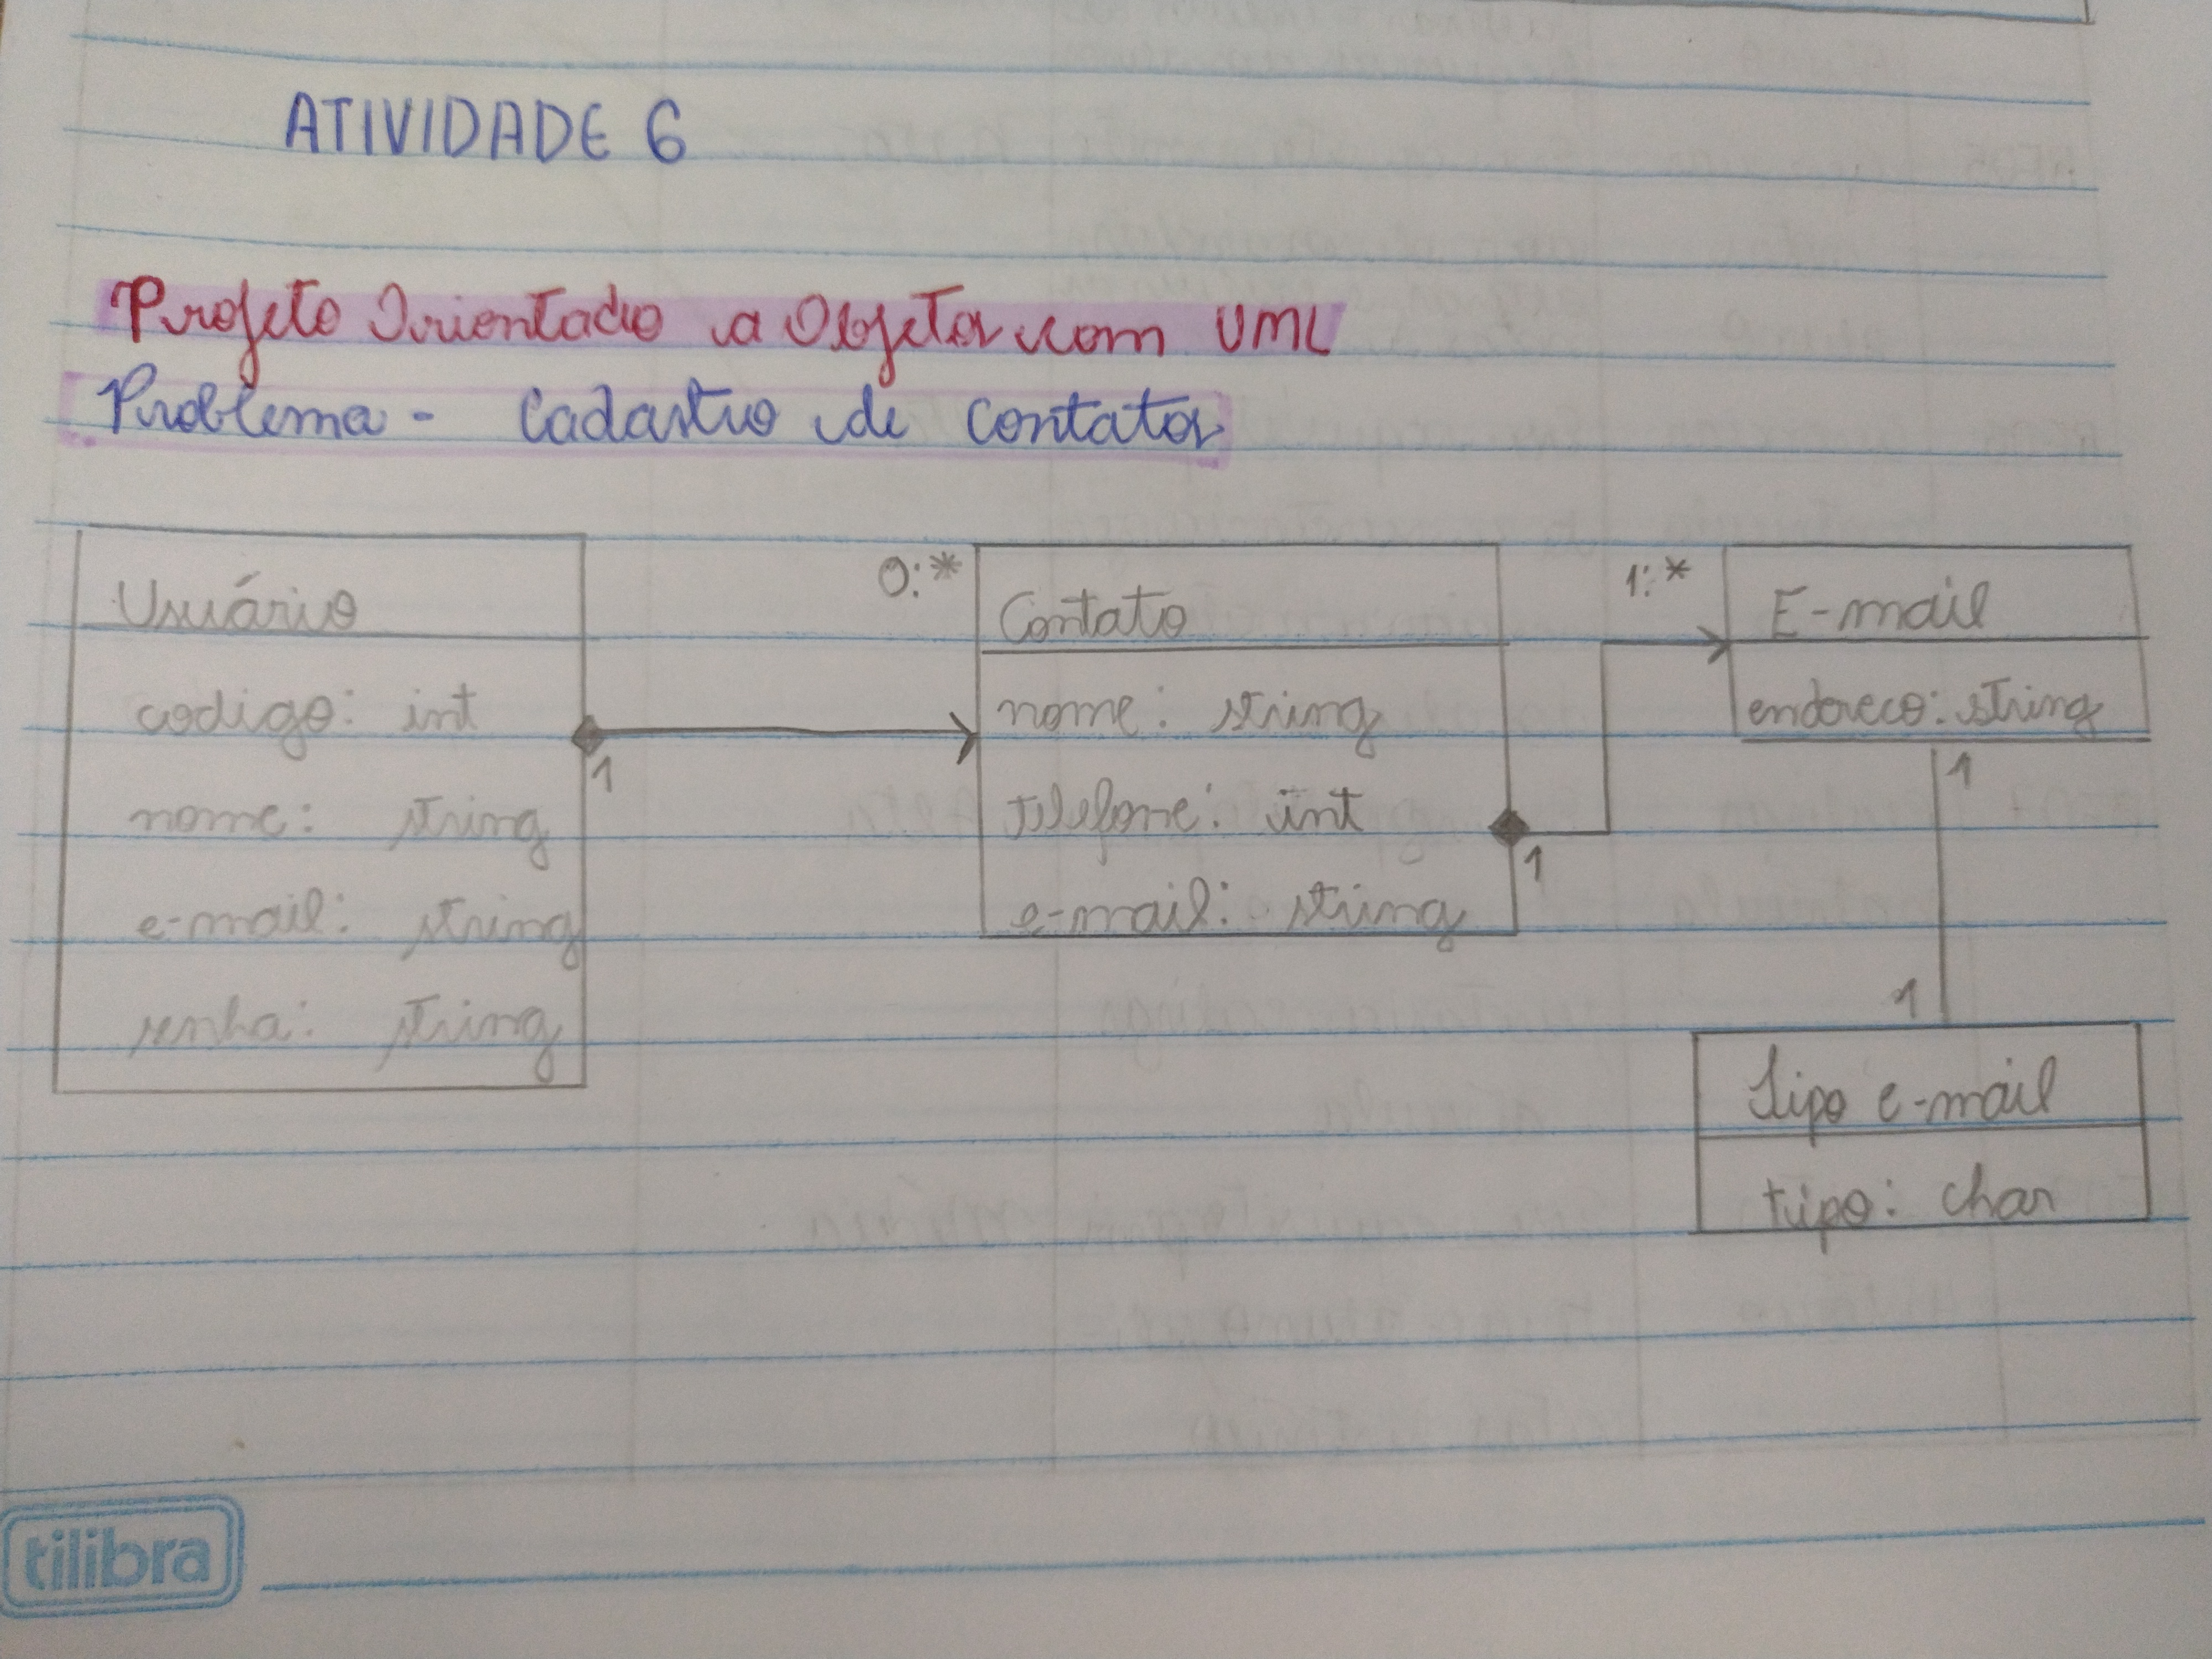 ATIVIDADE 6
Projeto Orientado a Objetos com UML
Problema - Cadastro de Contatos
Usuário
codigo: int
nome: string
e-mail: string
senha: string
1
0:*
Contato
nome: string
telefone: int
e-mail: string
1
1:*
E-mail
endereco: string
1
1
Tipo e-mail
tipo: char
tilibra